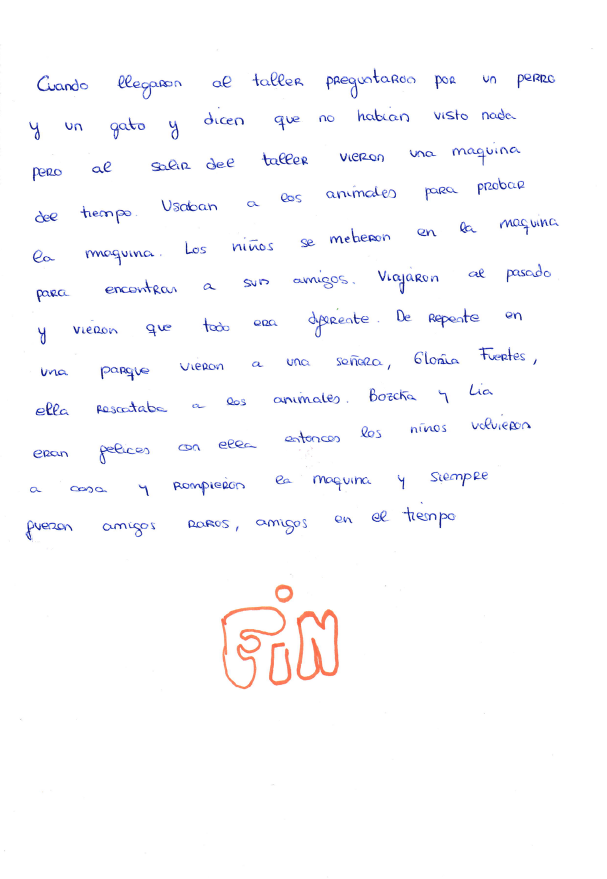 Cuando llegaron al taller preguntaron por un perro
y un gato y dicen que no habian visto nada
pero al salir del taller vieron una maquina
del tiempo. Usaban a los animales para probar
la maquina. Los niños se metieron en la maquina
para encontrar a sus amigos. Viajaron al pasado
y vieron que todo era diferente. De repente en
una parque vieron a una señora, Gloria Fuertes,
ella rescataba a los animales. Bozcka y Lia
eran felices con ella entonces los niños volvieron
a casa y rompieron la maquina y siempre
fueron amigos raros, amigos en el tiempo
FiN